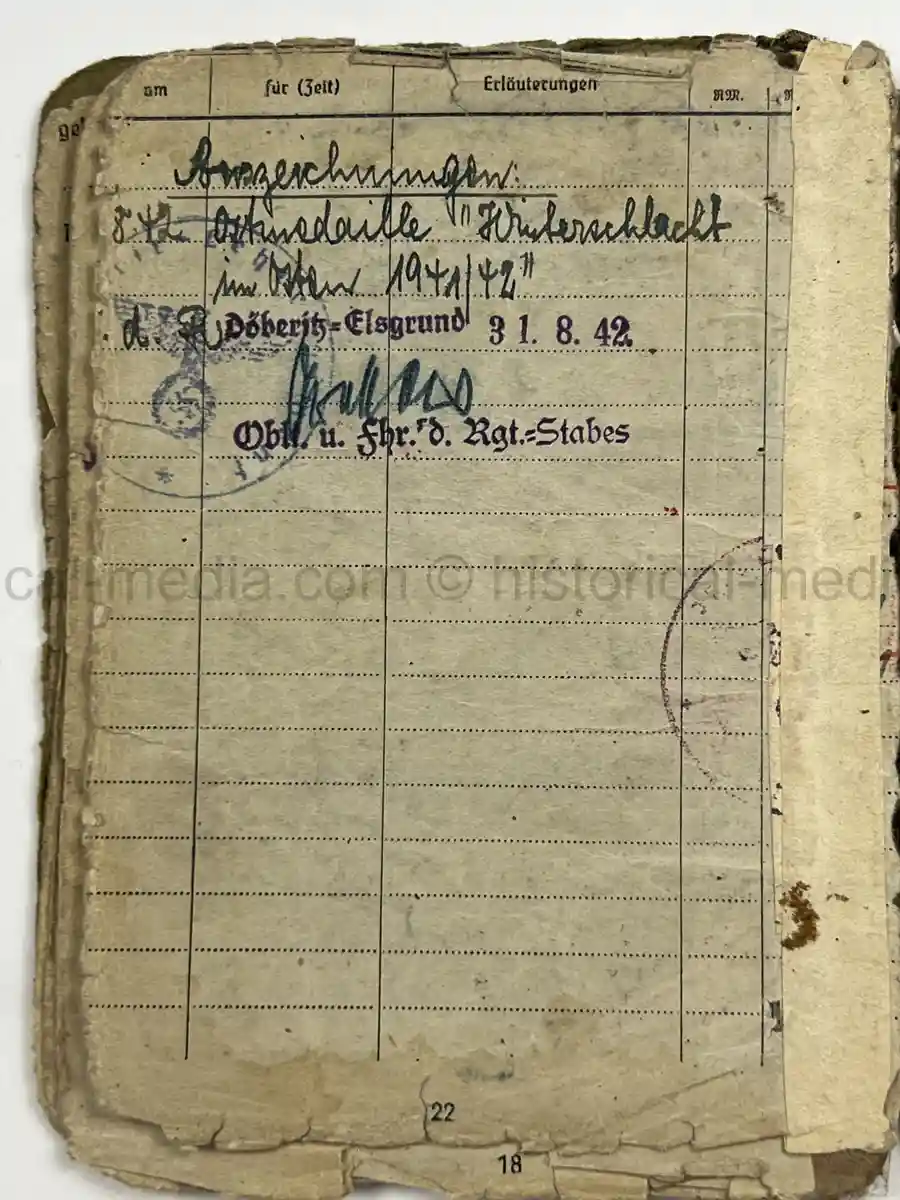 am für (Zeit) Erläuterungen RM.
ge
Auszeichnungen:
8.42. Ostmedaille "Winterschlacht
im Osten 1941/42"
d. R
Döberitz=Elsgrund 31. 8. 42.
Oblt. u. Fhr. d. Rgt.=Stabes
cal-media.com © historical-medi
22
18